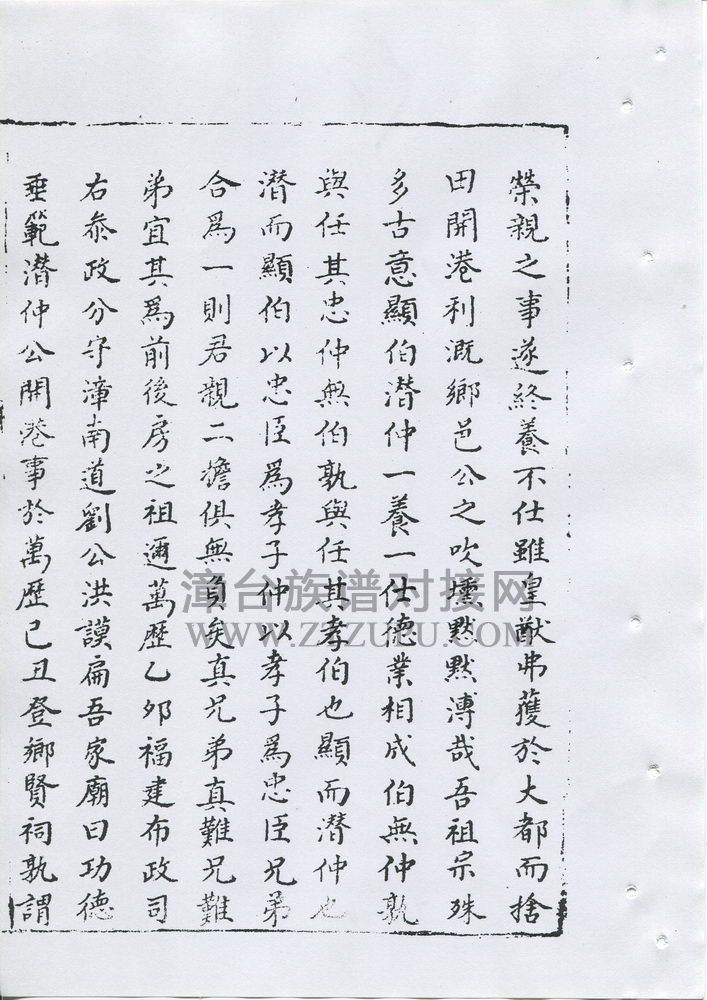 榮親之事遂終養不仕雖皇猷弗獲於大都而捨
田開港利溉鄉邑公之吹壎黙黙溥哉吾祖宗殊
多古意顯伯潛仲一養一仕德業相成伯無仲孰
與任其忠仲無伯孰與任其孝伯也顯而潛仲也
潛而顯伯以忠臣為孝子仲以孝子為忠臣兄弟
合為一則君親二擔俱無負矣真兄弟真難兄難
弟宜其為前後房之祖邇萬歷乙卯福建布政司
右叅政分守漳南道劉公洪謨扁吾家廟曰功德
垂範潛仲公開港事於萬歷己丑登鄉賢祠孰謂
漳台族谱对接网
WWW.ZTZUPU.COM